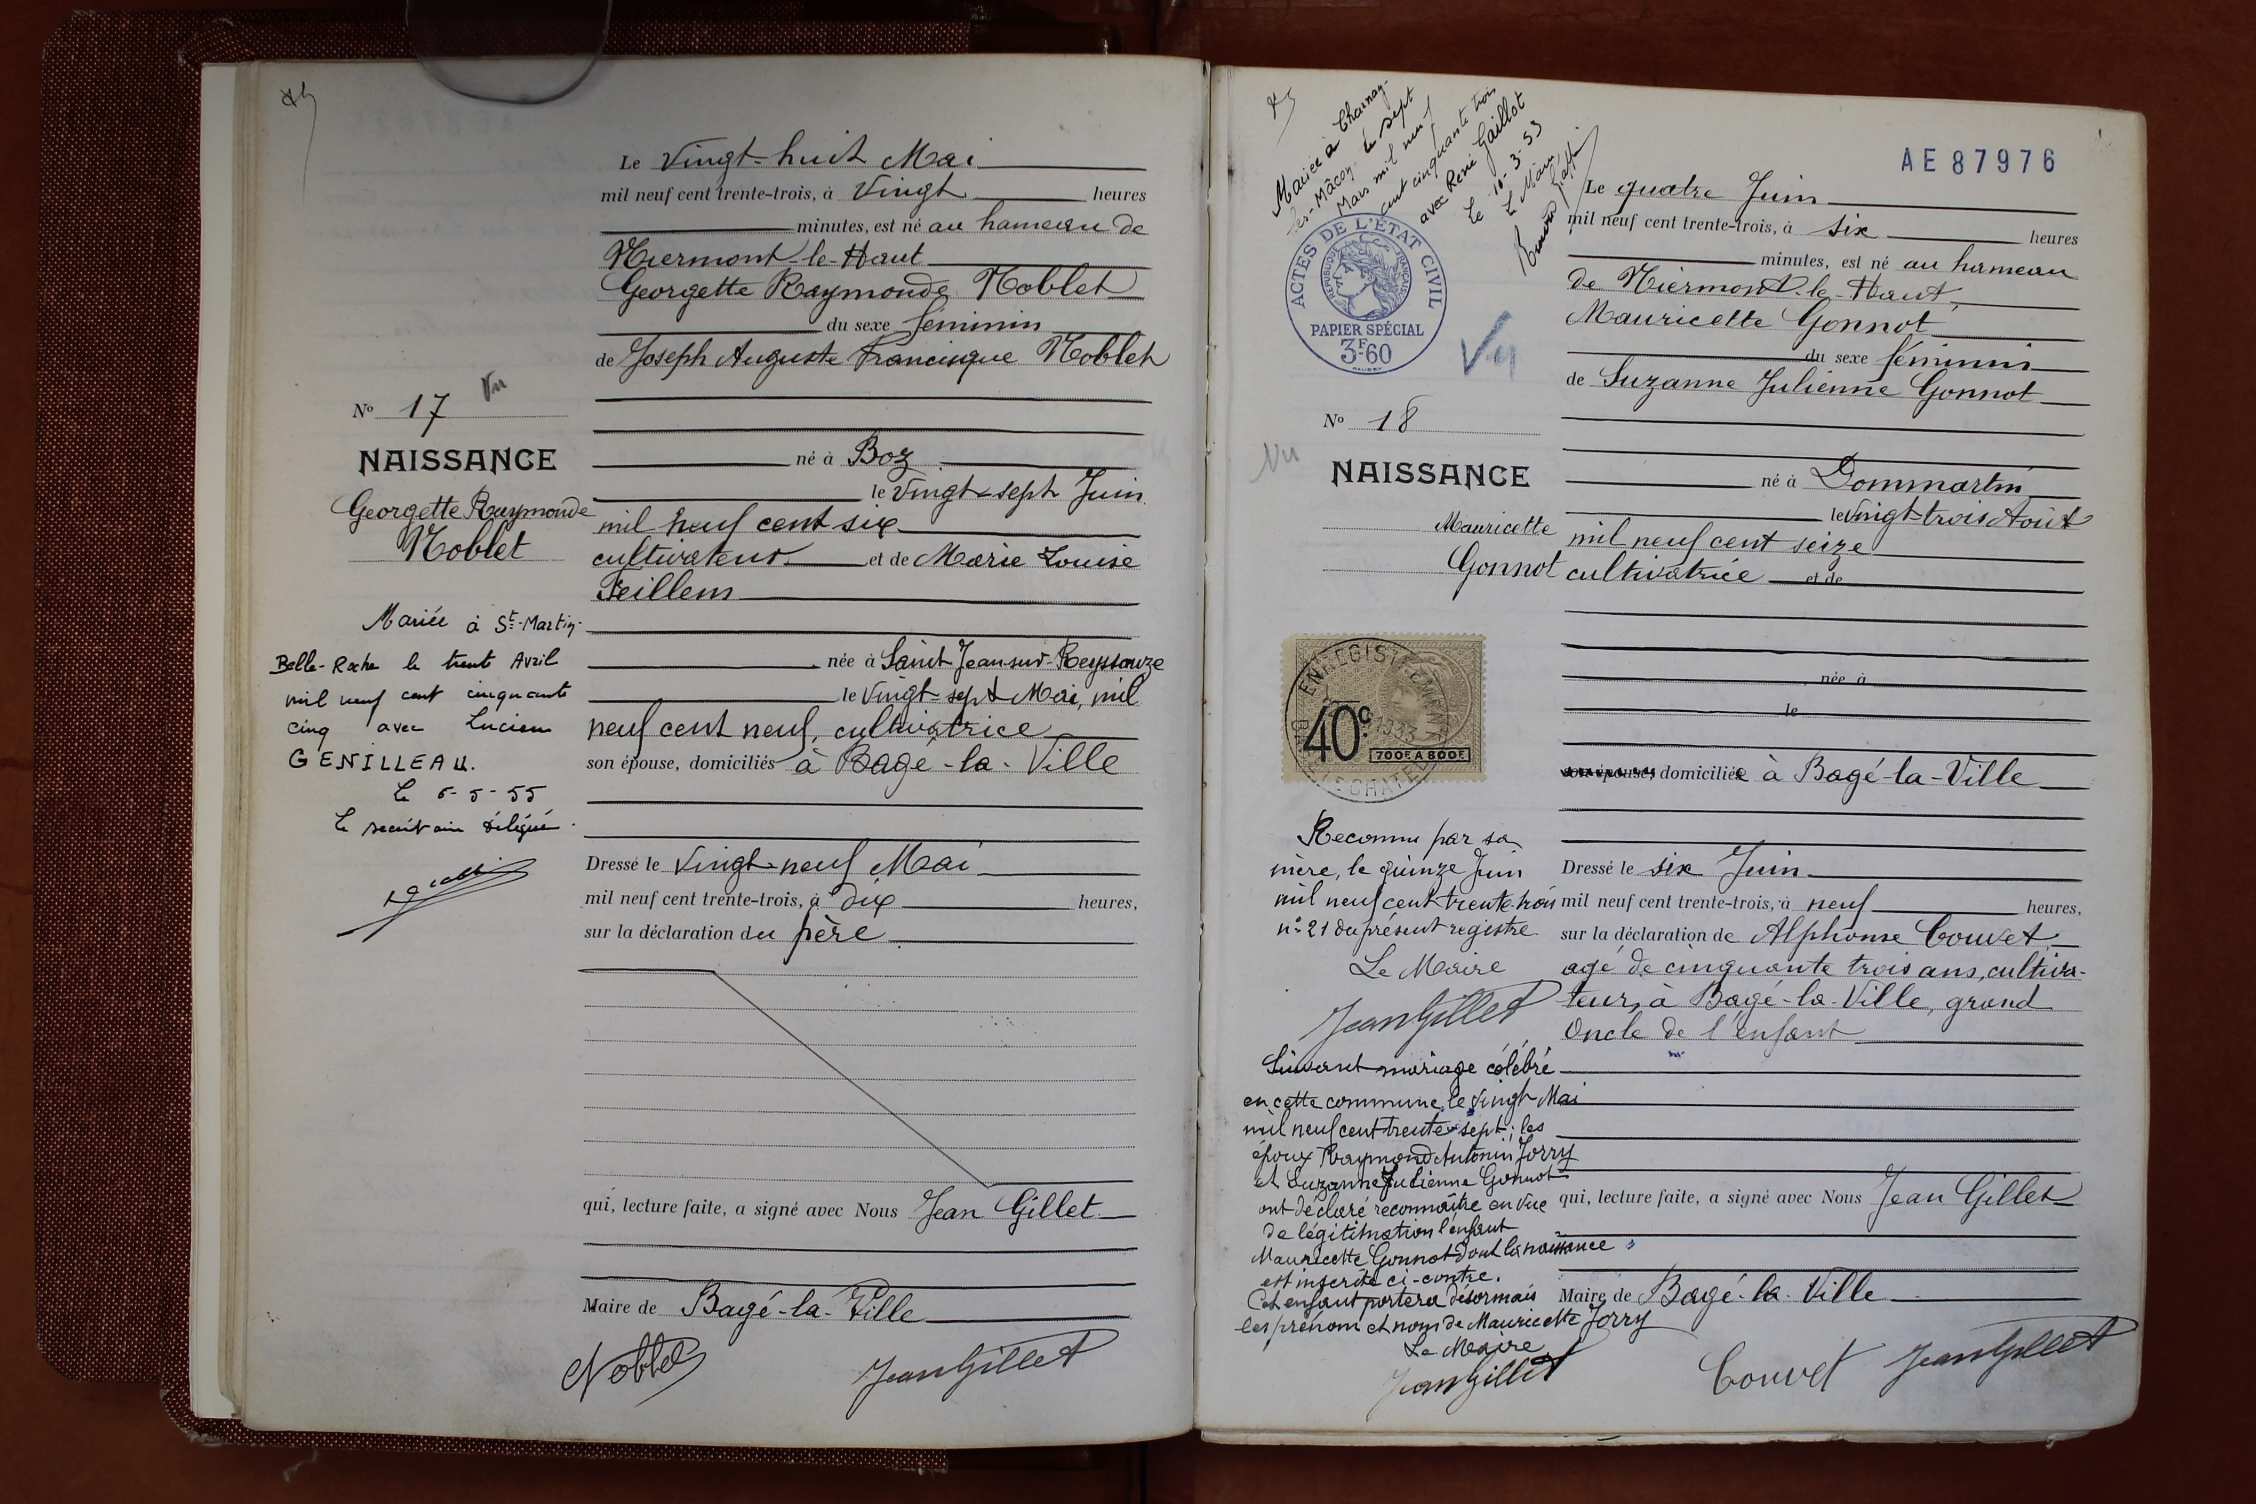 Le Vingt-huit Mai
mil neuf cent trente-trois, à Vingt heures
minutes, est né au hameau de
Niermont-le-Haut
Georgette Raymonde Noblet
du sexe féminin
de Joseph Auguste Francisque Noblet
né à Boz
le Vingt-sept Juin
mil neuf cent six
cultivateur et de Marie Louise
Feillens
née à Saint Jean-sur-Reyssouze
le Vingt-sept Mai, mil
neuf cent neuf, cultivatrice
son épouse, domiciliés à Bagé-la-Ville
Dressé le Vingt-neuf Mai
mil neuf cent trente-trois, à dix heures,
sur la déclaration du père
qui, lecture faite, a signé avec Nous Jean Gillet
Maire de Bagé-la-Ville
Noblet
Jean Gillet
Vu
No 17
NAISSANCE
Georgette Raymonde
Noblet
Mariée à St-Martin-
Belle-Roche le trente Avril
mil neuf cent cinquante
cinq avec Lucien
GENILLEAU.
Le 6-5-55
Le secrétaire délégué
Mariée à Charnay-
les-Mâcon le sept
Mars mil neuf
cent cinquante trois
avec René Gaillot
Le 10-3-53
Le Maire
ACTES DE L'ÉTAT CIVIL
RÉPUBLIQUE FRANÇAISE
PAPIER SPÉCIAL
3F60
Vu
No 18
Vu
NAISSANCE
Mauricette
Gonnot
ENREGISTREMENT
1933
40c
700F A 800F
Reconnu par sa
mère, le quinze Juin
mil neuf cent trente-trois
n° 21 du présent registre
Le Maire
Jean Gillet
Suivant mariage célébré
en cette commune, le vingt Mai
mil neuf cent trente-sept, les
époux Raymond Antonin Jorry
et Suzanne Julienne Gonnot
ont déclaré reconnaître en vue
de légitimation l'enfant
Mauricette Gonnot dont la naissance
est inscrite ci-contre.
Cet enfant portera désormais
les prénom et nom de Mauricette Jorry
Le Maire
Jean Gillet
AE 87976
Le quatre Juin
mil neuf cent trente-trois, à six heures
minutes, est né au hameau
de Niermont-le-Haut,
Mauricette Gonnot
du sexe féminin
de Suzanne Julienne Gonnot
né à Dommartin
le Vingt-trois Août
mil neuf cent seize
cultivatrice et de
née à
le
son épouse, domiciliée à Bagé-la-Ville
Dressé le six Juin
mil neuf cent trente-trois, à neuf heures,
sur la déclaration de Alphonse Couvet,
agé de cinquante trois ans, cultiva-
teur, à Bagé-la-Ville, grand
Oncle de l'enfant
qui, lecture faite, a signé avec Nous Jean Gillet
Maire de Bagé-la-Ville
Couvet
Jean Gillet